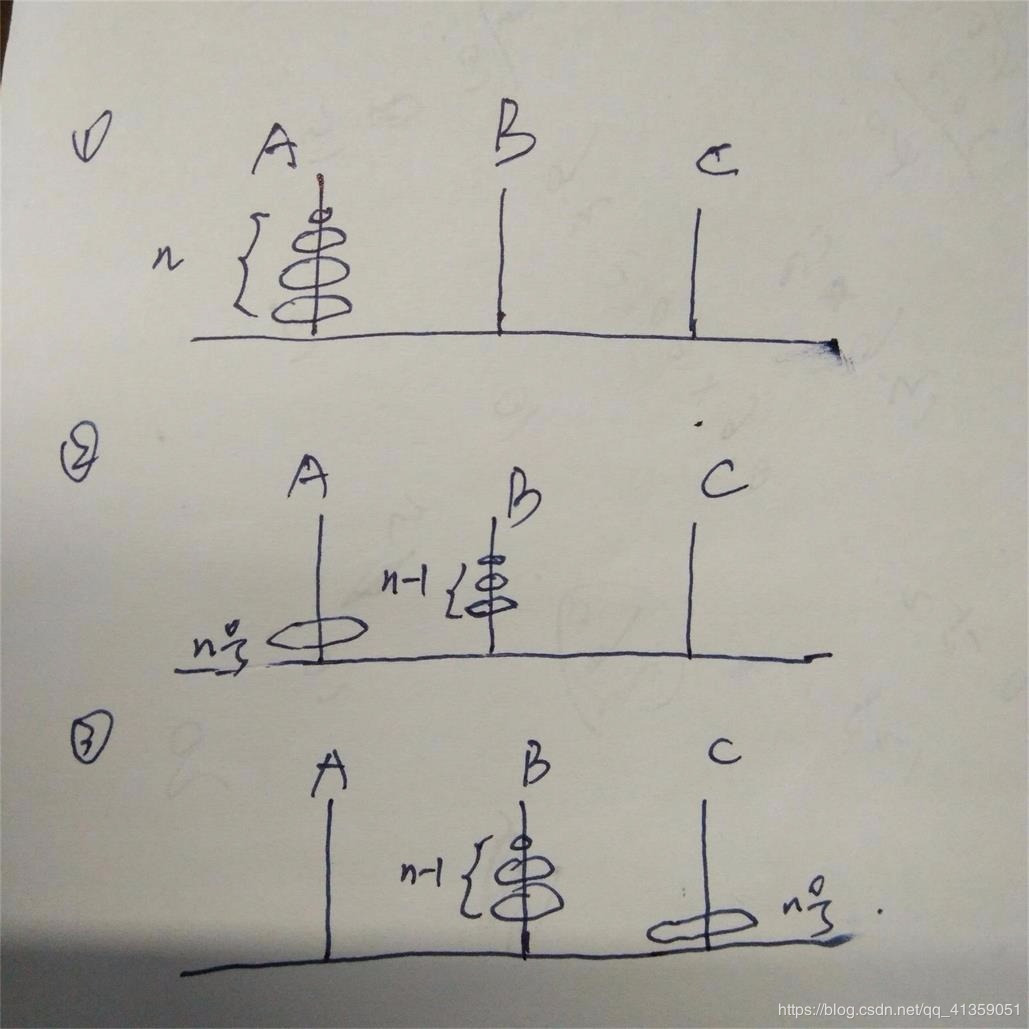 ①
A B C
n
②
A B C
n-1
n号
③
A B C
n-1
n号
https://blog.csdn.net/qq_41359051